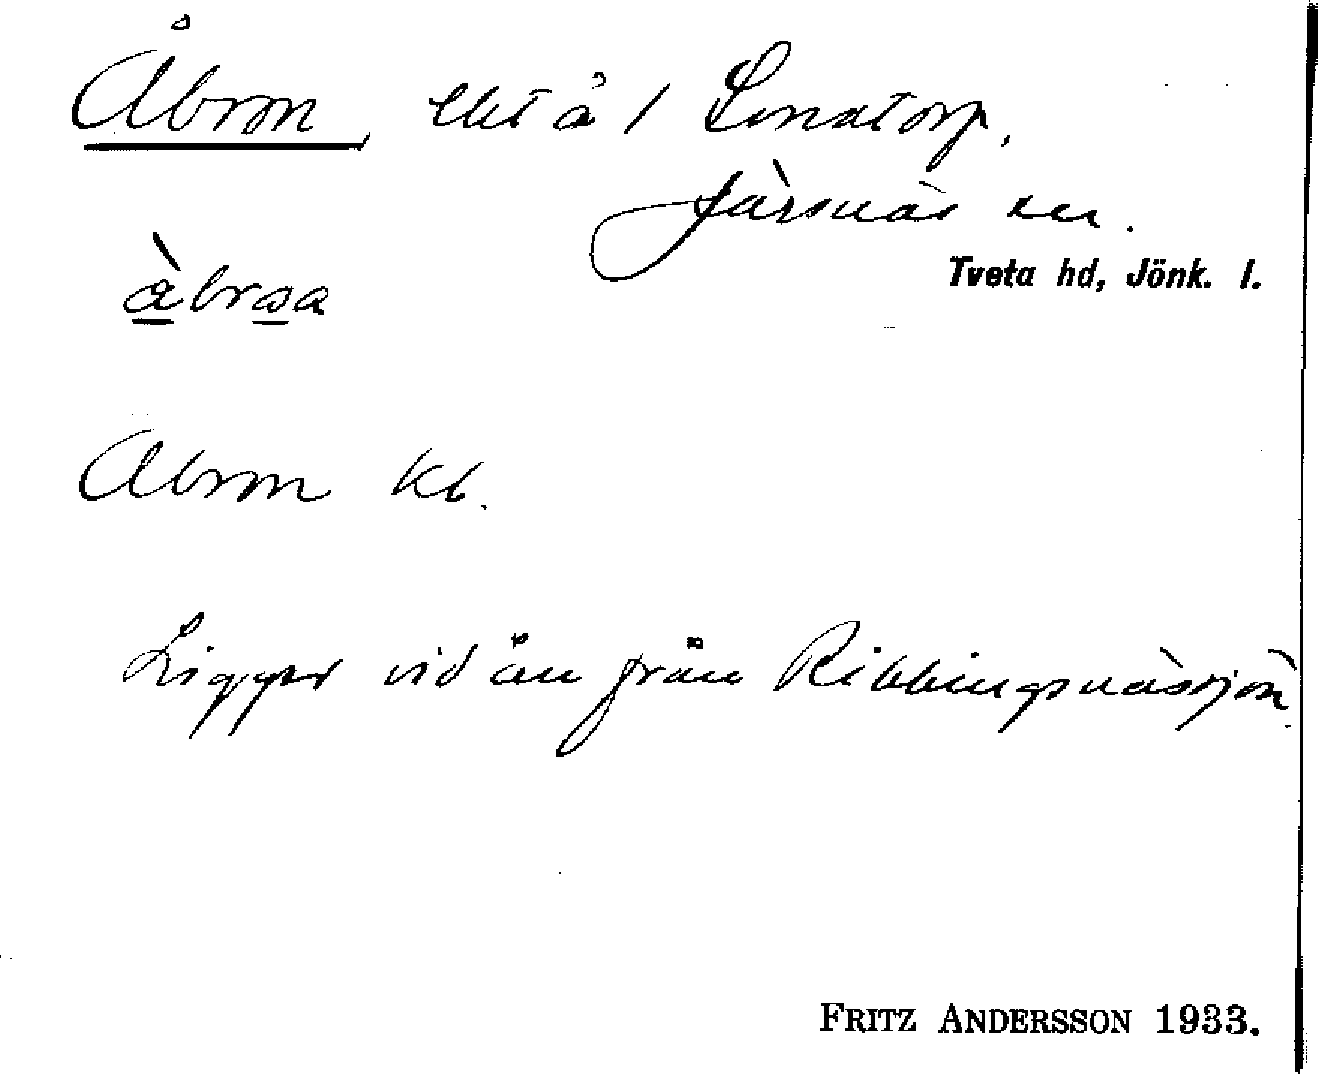 Åbron, lht å 1 Lonatorp,
Järsnäs sn.
Tveta hd, Jönk. l.
Åbron kb.
Ligger vid ån från Ribbingsnäsjön.
FRITZ ANDERSSON 1933.